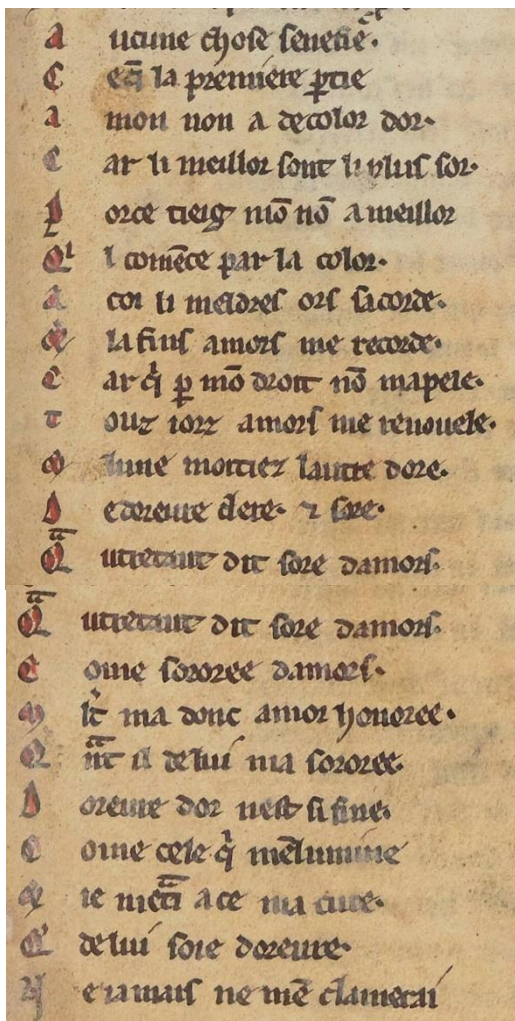 A ucune chose senefie.
C eq̄ la premiere ꝑtie
A mon non a decolor dor.
C ar li meillor sont li plus sor.
P orce tieig mō nō ameillor
Qi l comēce par la color.
A coi li meldres ors sacorde.
E la fins amors me recorde.
C ar qͥ ꝑ mō droit nō mapele.
T ouz iorz amors me renouele.
E lune moitiez lautre dore.
D edoreure clere. ⁊ sore.
Qᵃ utretant dit sore damors.
Qᵃ utretant dit sore damors.
C ome sororee damors.
M lt̄ ma donc amor honoree.
Q ᵃnt il delui ma sororee.
D oreure dor nest si fine.
C ome cele qͥ mēlumine
E ie metᵃi a ce ma cure.
Q̄ delui soie doreure.
N e iamais ne mē clamerai